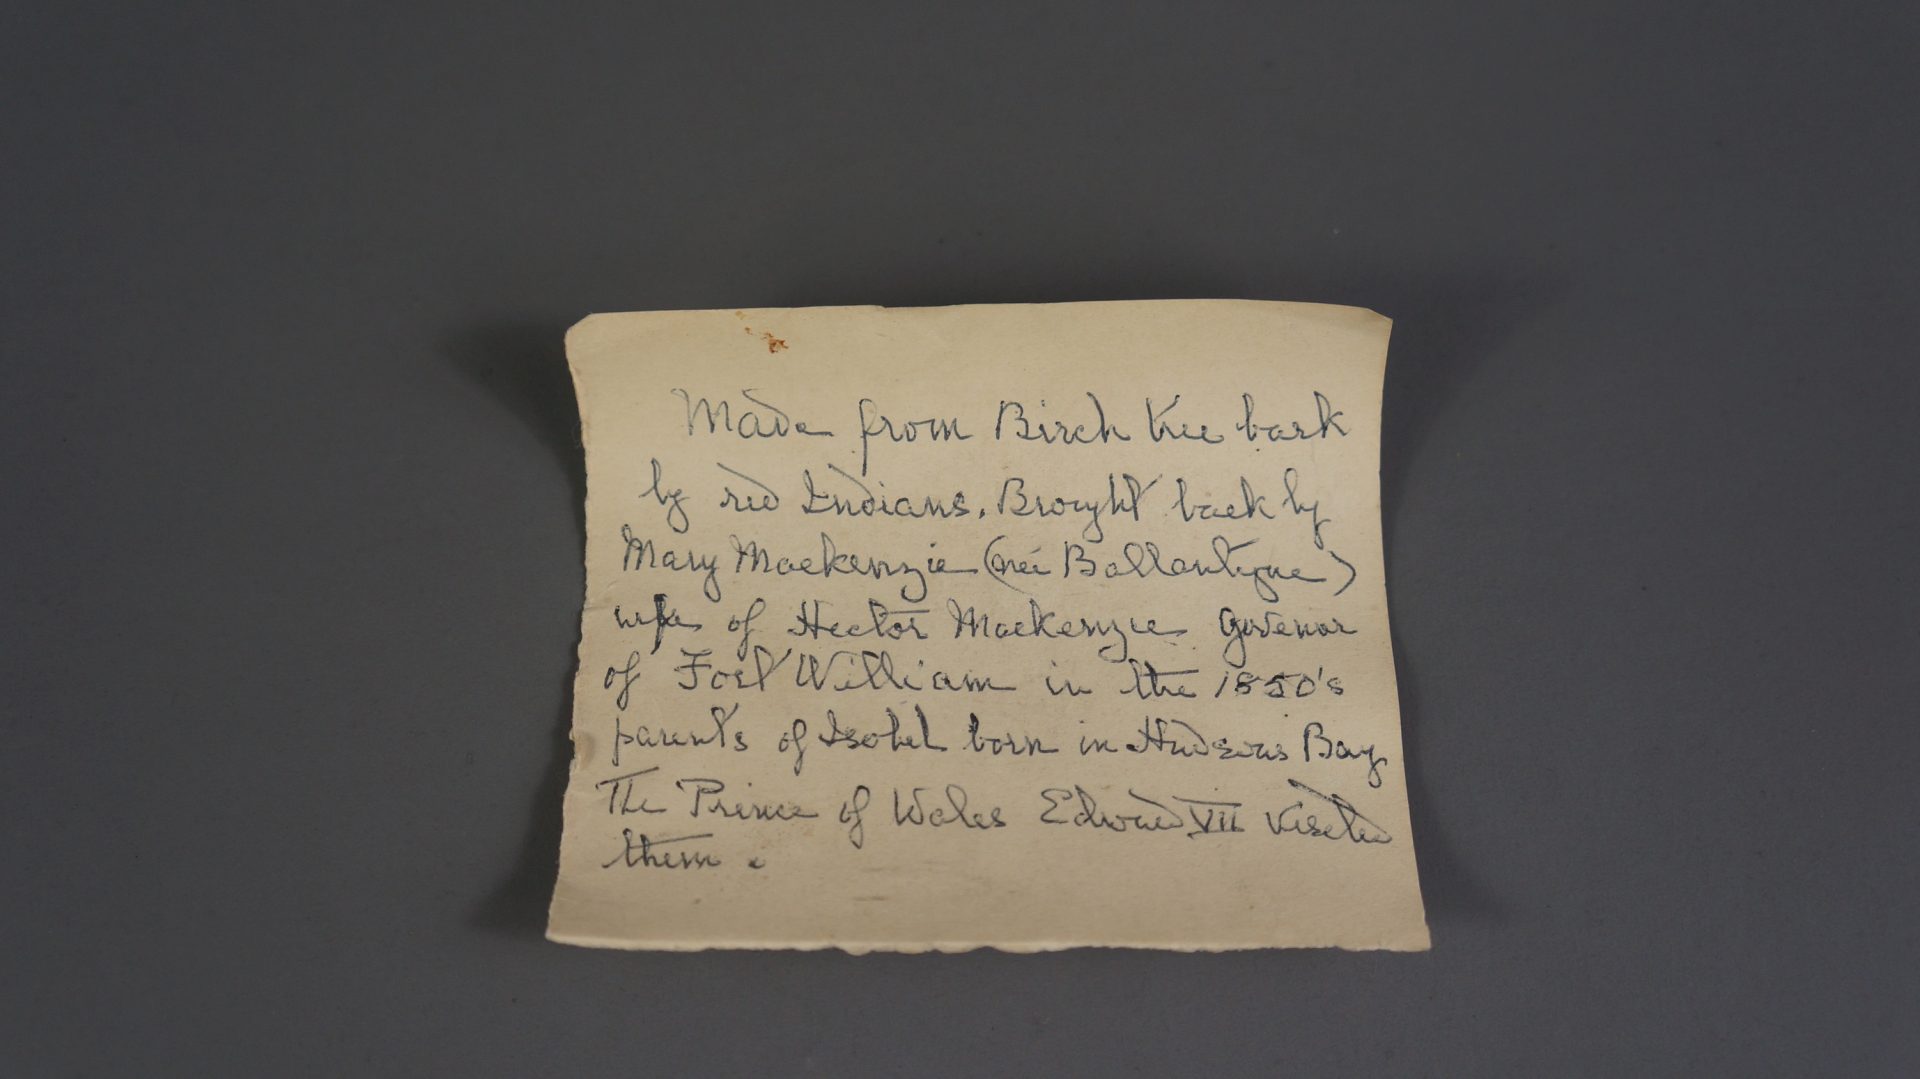 Made from Birch tree bark
by red Indians. Brought back by
Mary Mackenzie (neé Ballantyne)
wife of Hector Mackenzie Govenor
of Fort William in the 1850's
parents of Isobel born in Hudsons Bay
The Prince of Wales Edward VII visited
them.